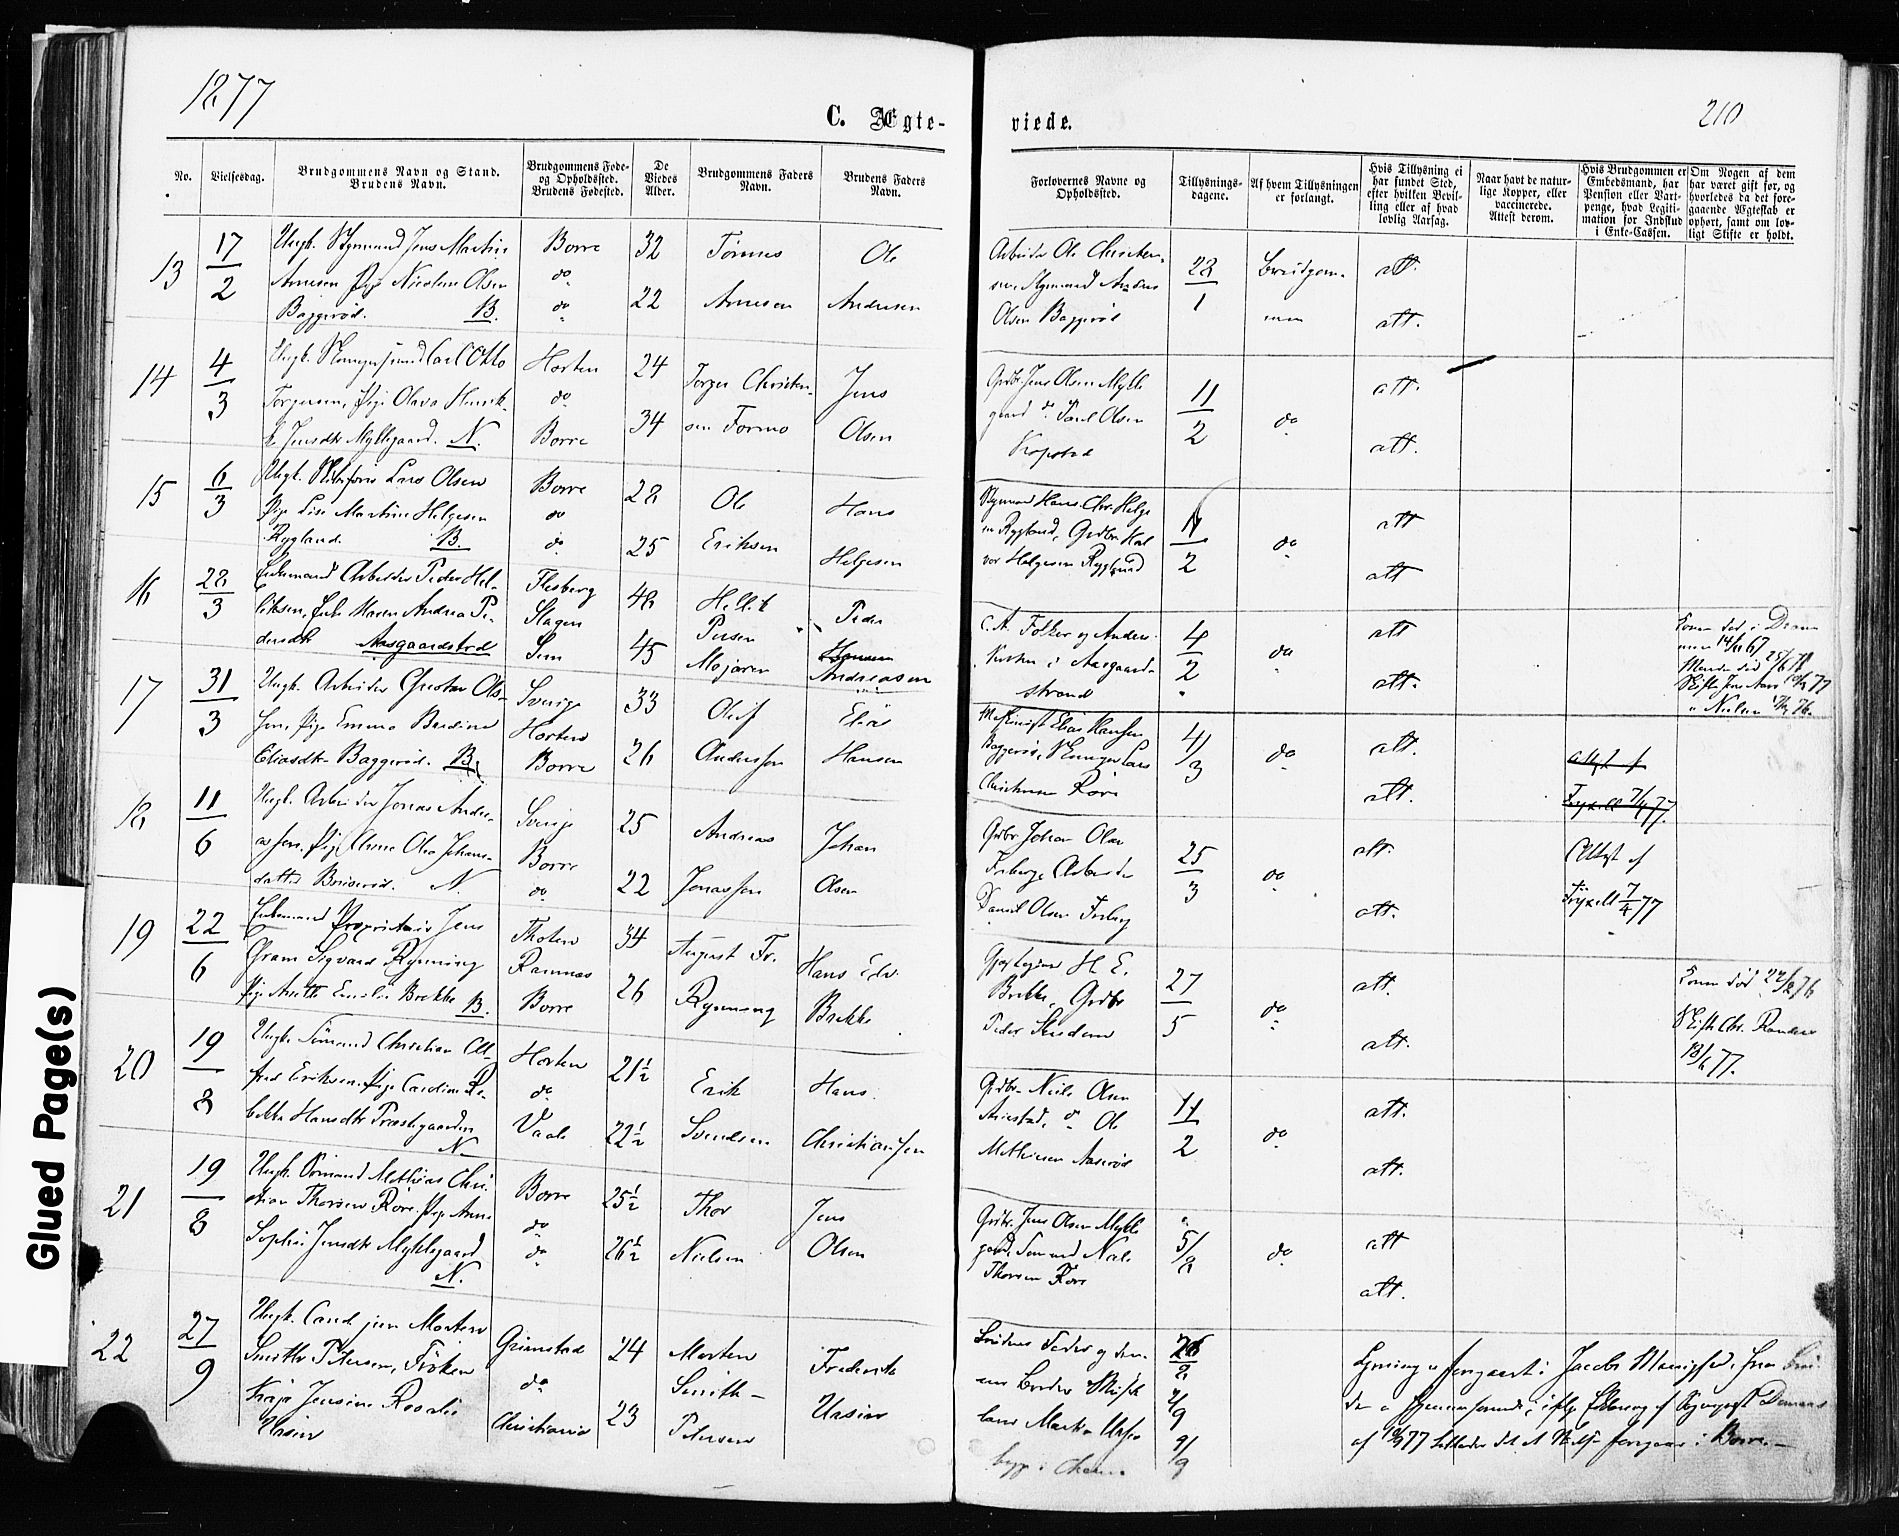 1877
C. Ægte-
viede.
210
No.
Vielsesdag.
Brudgommens Navn og Stand.
Brudens Navn.
Brudgommens Føde-
og Opholdssted.
Brudens Fødested.
De
Viedes
Alder.
Brudgommens Faders
Navn.
Brudens Faders
Navn.
Forlovernes Navne og
Opholdssted.
Tillysnings-
dagene.
Af hvem Tillysningen
er forlangt.
Hvis Tillysning ei
har fundet Sted,
efter hvilken Bevil-
ling eller af hvad
lovlig Aarsag.
Naar havt de natur-
lige Kopper, eller
vaccinerede.
Attest derom.
Hvis Brudgommen er
Embedsmand, har
Pension eller Vart-
penge, hvad Legiti-
mation for Indskud
i Enke-Cassen.
Om Nogen af dem
har været gift før, og
hvorledes da det fore-
gaaende Ægteskab er
ophørt, samt om lov-
ligt Skifte er holdt.
13
17/2
Ungk. Jens Martin
Arnesen Pige Nicoline Olsen
Baggerød. B.
Borre
do
do
32
22
Tønnes
Arnesen
Ole
Andersen
Arbeider Ole Christen-
sen Anders
Olsen Baggerød
28/1
Brudgom-
men
att.
att.
14
4/3
Ungk. Carl Otto
Torgersen, Pige Olava Henrik-
ke Jensdtr Myklegaard. N.
Horten
do
Borre
24
34
Torger Christen-
sen Formo
Jens
Olsen
Grdbr. Jens Olsen Mykle
gaard do Paul Olsen
Kopstad
11/2
do
att.
att.
15
6/3
Ungk. Lars Olsen
Pige Lise Martine Helgesen
Rygland. B.
Borre
do
do
28
25
Ole
Eriksen
Hans
Helgesen
Hans Chr. Helge
sen Rygland, Grdbr. Hal
vor Helgesen Rygland
11/2
do
att
att
16
28/3
Enkemand Arbeider Peder Hel-
liksen, Enke Maren Andrea Pe-
dersdtr Aasgaardstrd
Flesberg
Slagen
Sem
48
45
Hellik
Persen
Mogøren
Peder
Andreasen
C. A. Folker og Anders
i Aasgaard-
strand
4/2
do
att
att.
Konen død i Dram
men 14/11 67
Manden død 25/6 71
17
31/3
Ungk. Arbeider Gustav Ols-
sen, Pige Emma Berdine
Eliasdtr Baggerød. B.
Sverige
Horten
Borre
33
26
Olof
Andersson
Elias
Hansen
Maskinist Elias Hansen
Baggerød, Lars
Christensen Røre
4/3
do
att.
att.
Attest f
Fryxell 7/4 77.
18
11/6
Ungk. Arbeider Jonas Andre-
assen, Pige Anne Olea Johans-
datter N.
Sverige
Borre
do
25
22
Andreas
Jonassen
Johan
Olsen
Grdbr Johan Olsen
Freberg, Arbeider
Daniel Olsen Freberg
25/3
do
att.
att.
Attest af
Fryxell 7/4 77
19
22/6
Enkemand Proprietair Jens
Gram Sigvard Rynning
Pige Anette Emilie Brekke B.
Thoten
Ramnæs
Borre
34
26
August Fr.
Rynning
Hans Edv.
Brekke
H. E.
Brekke, Grdbr
Peder Skedem
27/5
do
att.
att.
Konen død 22/2 76
Skifte Chr. Randers
13/1 77.
20
19/8
Ungk. Sömand Christian Al-
fred Eriksen, Pige Caroline Re-
bekka Hansdtr Præstegaarden
N.
Horten
do
Vaale
21½
22½
Erik
Svendsen
Hans
Christiansen
Grdbr. Niels Olsen
do Ole
Mathisen Aaserød
11/2
do
att.
att.
21
19/8
Ungk. Sömand Mathias Chri-
stian Thorsen Røre. Pige Anne
Sophie Jensdtr Myklegaard
N.
Borre
do
do
25½
26½
Thor
Nielsen
Jens
Olsen
Grdbr. Jens Olsen Mykle
gaard, Sømand Niels
Thorsen Røre
5/8
do
att
att.
22
27/9
Ungk. Cand. jur. Morten
Smith Petersen, Frøken
Kaja Jensine Rosalie
Vasier
Grimstad
do
Christiania
24
23
Morten
Smith-
Petersen
Frederik
Brudens Fader og den-
nes Broder
26/8
2/9
9/9
Lysning er foregaaet i Jacobs Menighed, hvor Bru
den er
af 77 i Borre.
Glued Page(s)